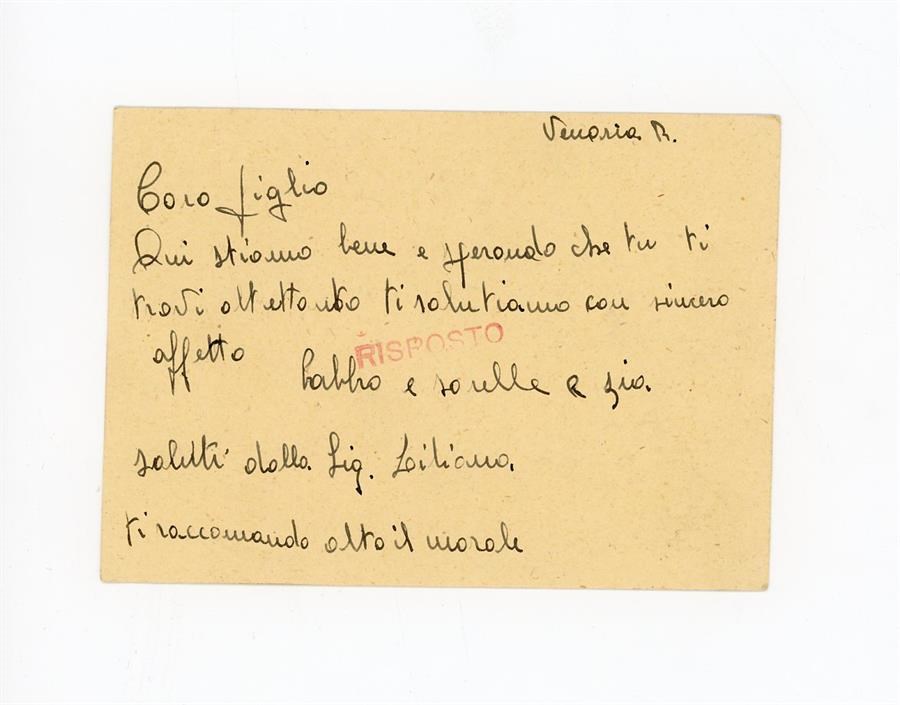 Venaria R.
Caro figlio
Qui stiamo bene e sperando che tu ti
trovi altrettanto ti salutiamo con sincero
affetto
RISPOSTO
babbo e sorelle e zia.
saluti dalla Sig. Liliana.
ti raccomando alto il morale